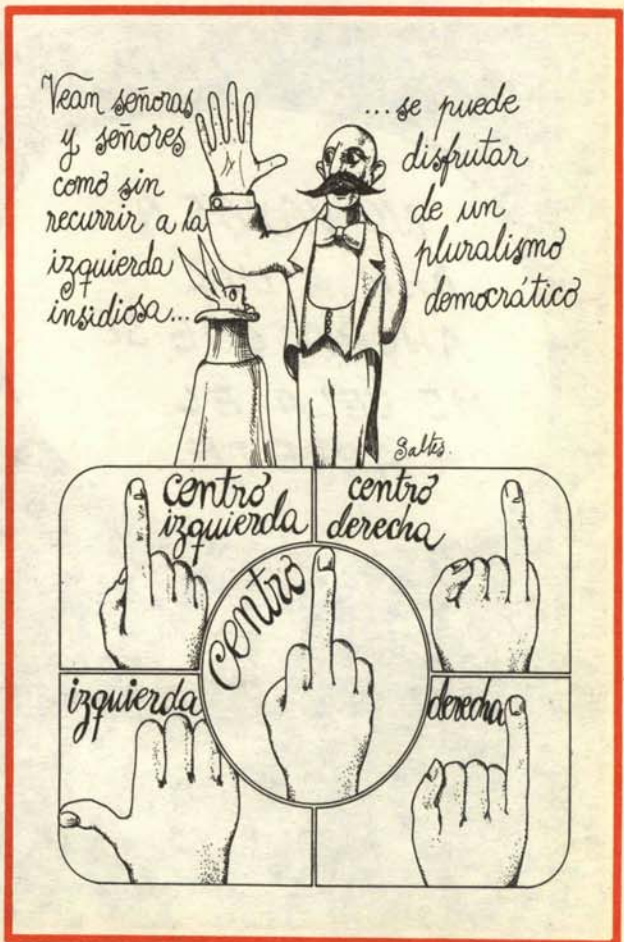 Vean señoras
y señores
como sin
recurrir a la
izquierda
insidiosa...
...se puede
disfrutar
de un
pluralismo
democrático
centro
izquierda
centro
derecha
centro
izquierda
derecha